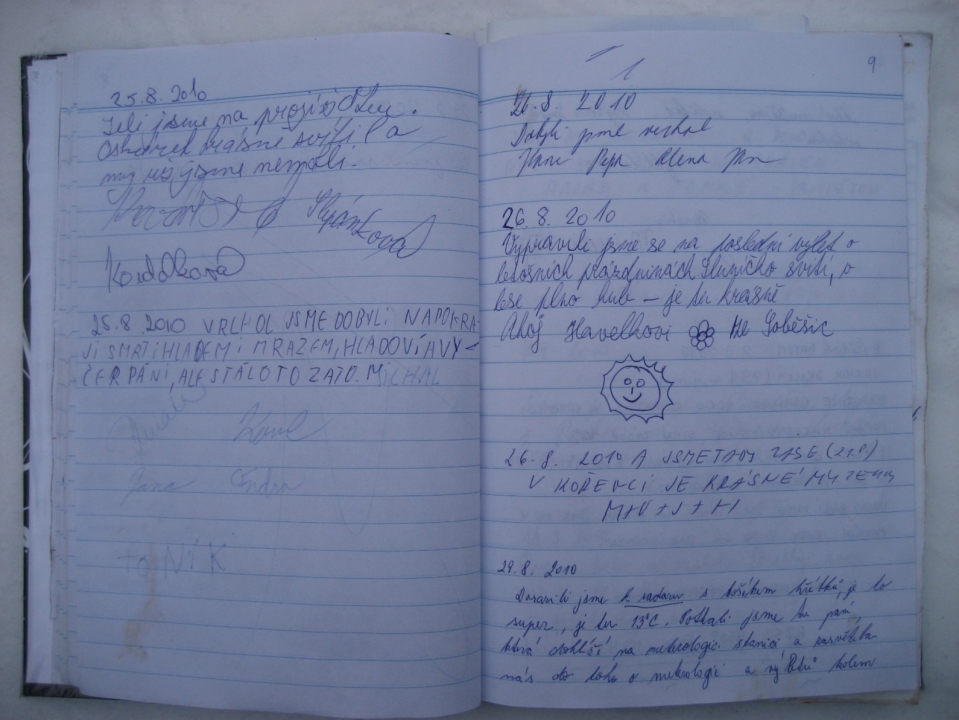 25.8. 2010
Jeli jsme na projížďku.
krásně svítil a
my už jsme nemohli.
Štěpánková
25.8 2010 VRCHOL JSME DOBYLI NAPOKRA-
JI SMRTI HLADEM I MRAZEM, HLADOVÍ A VY-
ČERPÁNI, ALE STÁLO TO ZATO. MICHAL
Renata Karel
Jana Jindra
TONÍK
9
26.8. 2010
Dobyli jsme vrchol
Pepa Alena Jan
26.8. 2010
Vypravili jsme se na poslední výlet o
letošních prázdninách Sluníčko svítí, v
lese plno hub – je to krásně
Ahoj Havelkovi Ke Soběšic
26.8. 2010 A JSME TADY ZASE (21.8)
V KOŘENCI JE KRÁSNÉ MUZEUM
M+V+J+H
29.8. 2010
Dorazili jsme k radaru s košíkem hříbků, je to
super, je tu 13°C. Potkali jsme tu paní,
která dohlíží na meteorologic. stanici a zasvětila
nás do toho o meteorologii a výletů kolem